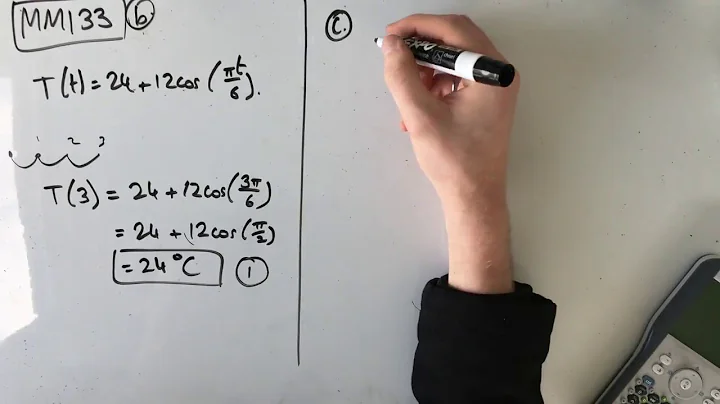 MM133 b
T(t) = 24 + 12cos(πt/6).
1 2 3
T(3) = 24 + 12cos(3π/6)
= 24 + 12cos(π/2)
= 24°C 1
c.
EXPO